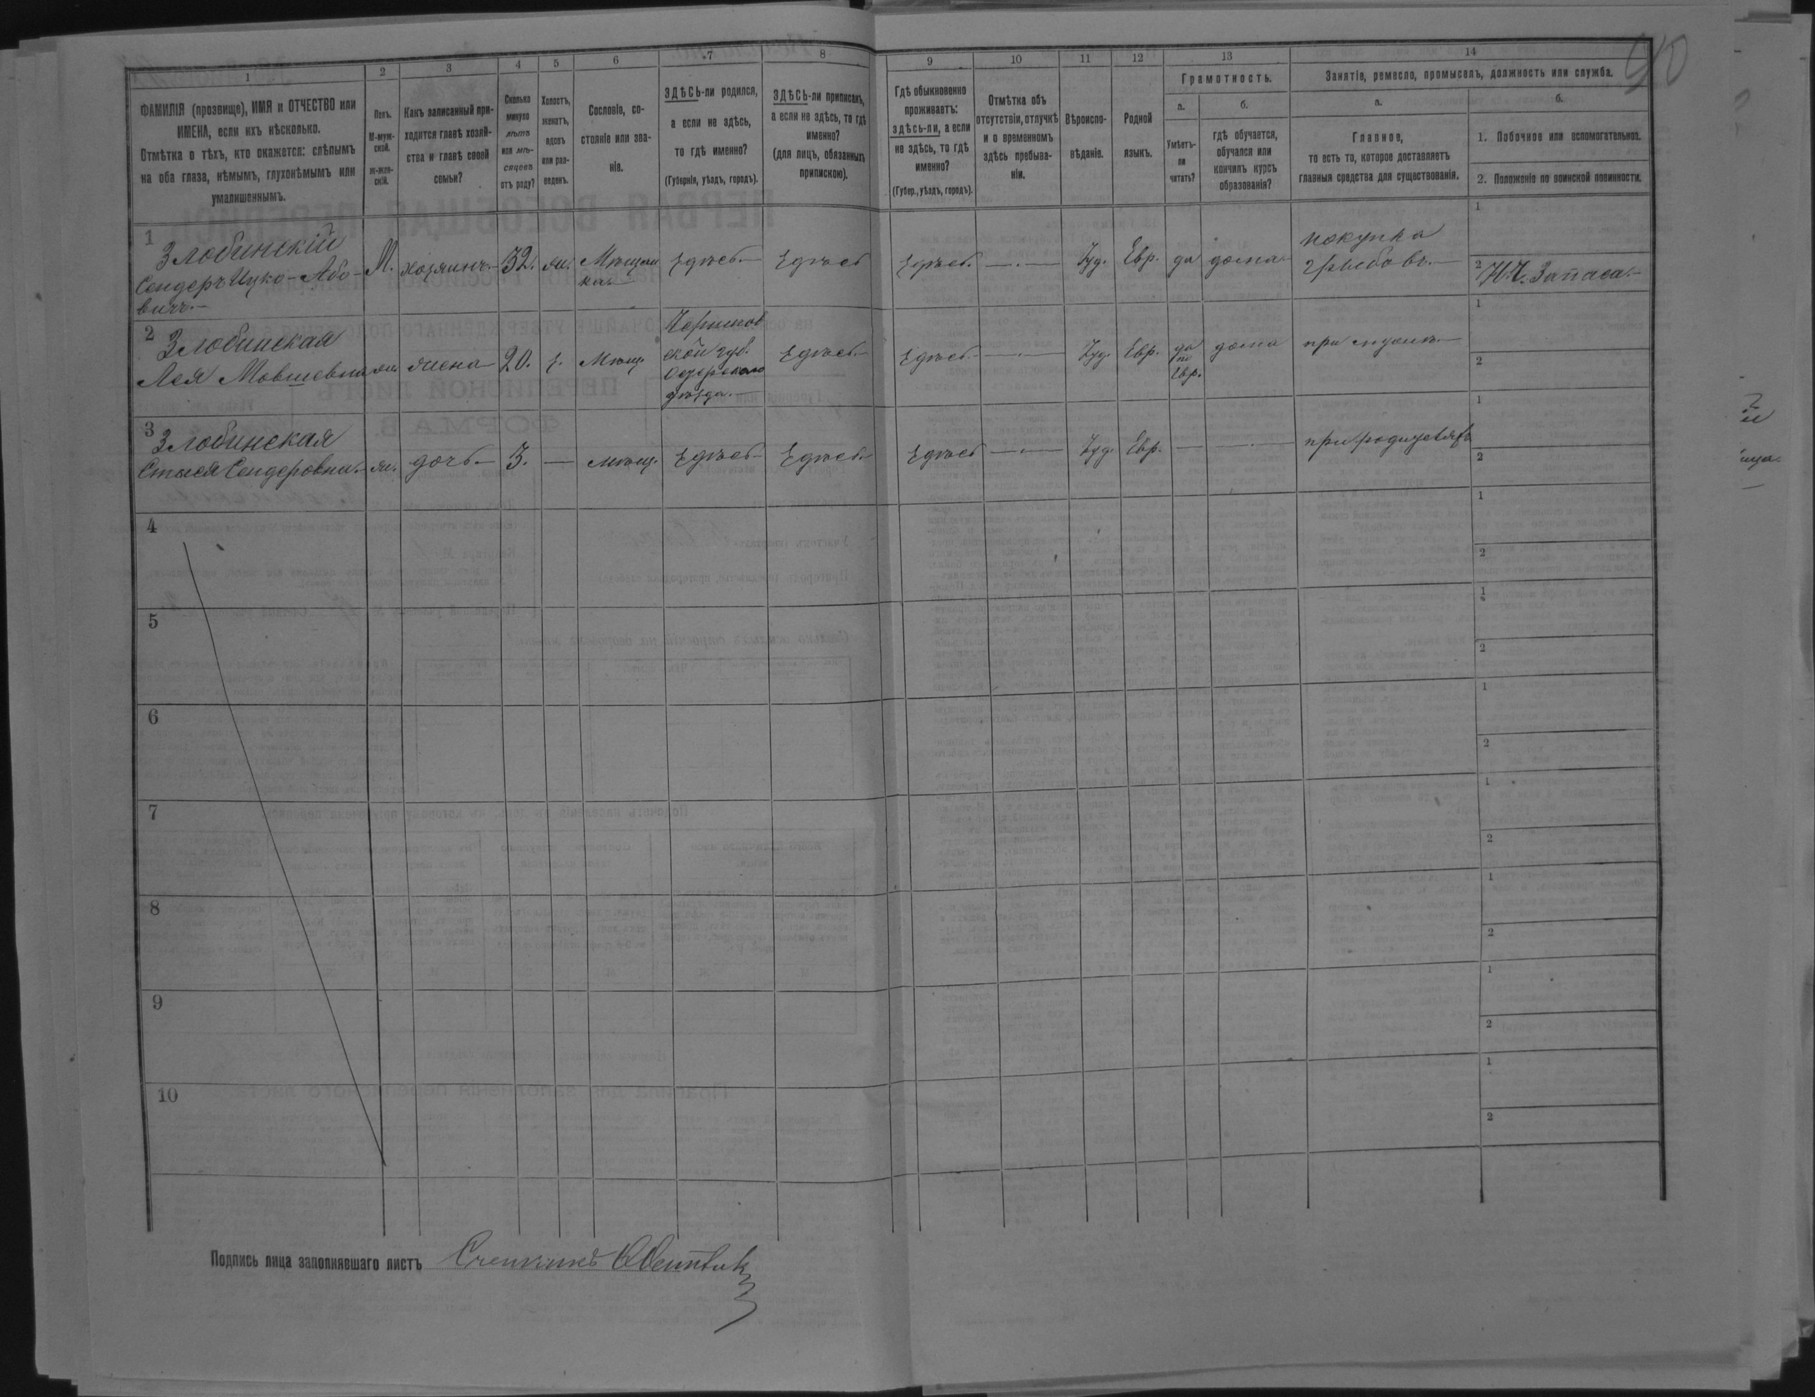 1 2 3 4 5 6 7 8 9 10 11 12 13 14
ФАМИЛІЯ (прозвище), ИМЯ и ОТЧЕСТВО или
ИМЕНА, если ихъ нѣсколько.
Отмѣтка о тѣхъ, кто окажется: слѣпымъ
на оба глаза, нѣмымъ, глухонѣмымъ или
умалишеннымъ.
Полъ.
М-муж-
ской.
Ж-жен-
скій.
Какъ записанный при-
ходится главѣ хозяй-
ства и главѣ своей
семьи?
Сколько
минуло
лѣтъ
или мѣ-
сяцевъ
отъ роду?
Холостъ,
женатъ,
вдовъ
или раз-
веденъ.
Сословіе, со-
стояніе или зва-
ніе.
ЗДѢСЬ-ли родился,
а если не здѣсь,
то гдѣ именно?
(Губернія, уѣздъ, городъ).
ЗДѢСЬ-ли приписанъ,
а если не здѣсь, то гдѣ
именно?
(для лицъ, обязанныхъ
припискою).
Гдѣ обыкновенно
проживаетъ:
здѣсь-ли, а если
не здѣсь, то гдѣ
именно?
(Губер., уѣздъ, городъ).
Отмѣтка объ
отсутствіи, отлучкѣ
и о временномъ
здѣсь пребыва-
ніи.
Вѣроиспо-
вѣданіе.
Родной
языкъ.
Грамотность.
а.
Умѣетъ-
ли
читать?
б.
гдѣ обучается,
обучался или
кончилъ курсъ
образованія?
Занятіе, ремесло, промыселъ, должность или служба.
а.
Главное,
то есть то, которое доставляетъ
главныя средства для существованія.
б.
1. Побочное или вспомогательное.
2. Положеніе по воинской повинности.
90
1
Злобинскій
Сендеръ Ицко-Або-
вичъ
М. хозяинъ 32. жи. Мѣщан
ка
Здѣсь Здѣсь Здѣсь — Іуд. Евр. да дома
покупка
грибовъ
1
2 Н.Ч. Запаса
2
Злобинская
Лея Мовшевна
жи. жена 20. з. Мѣщ.
Чернигов
ской губ.
уѣзда
Здѣсь Здѣсь — Іуд. Евр.
да
по
Евр.
дома при мужѣ
1
2
3
Злобинская
Стыся Сендеровна
жи. дочь 3. — мѣщ. Здѣсь Здѣсь Здѣсь — Іуд. Евр. — — при родителяхъ
1
2
4
1
2
5
1
2
6
1
2
7
1
2
8
1
2
9
1
2
10
1
2
Подпись лица заполнявшаго листъ